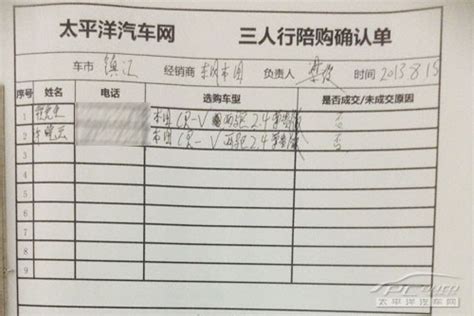 太平洋汽车网 三人行陪购确认单
车市 镇江 经销商 东风本田 负责人 时间 2013-8-15
序号 姓名 电话 选购车型 是否成交/未成交原因
1 本田CR-V 两驱2.4 否
2 本田CR-V 两驱2.4 否
3
4
5
6
7
8
9
PCauto
太平洋汽车网